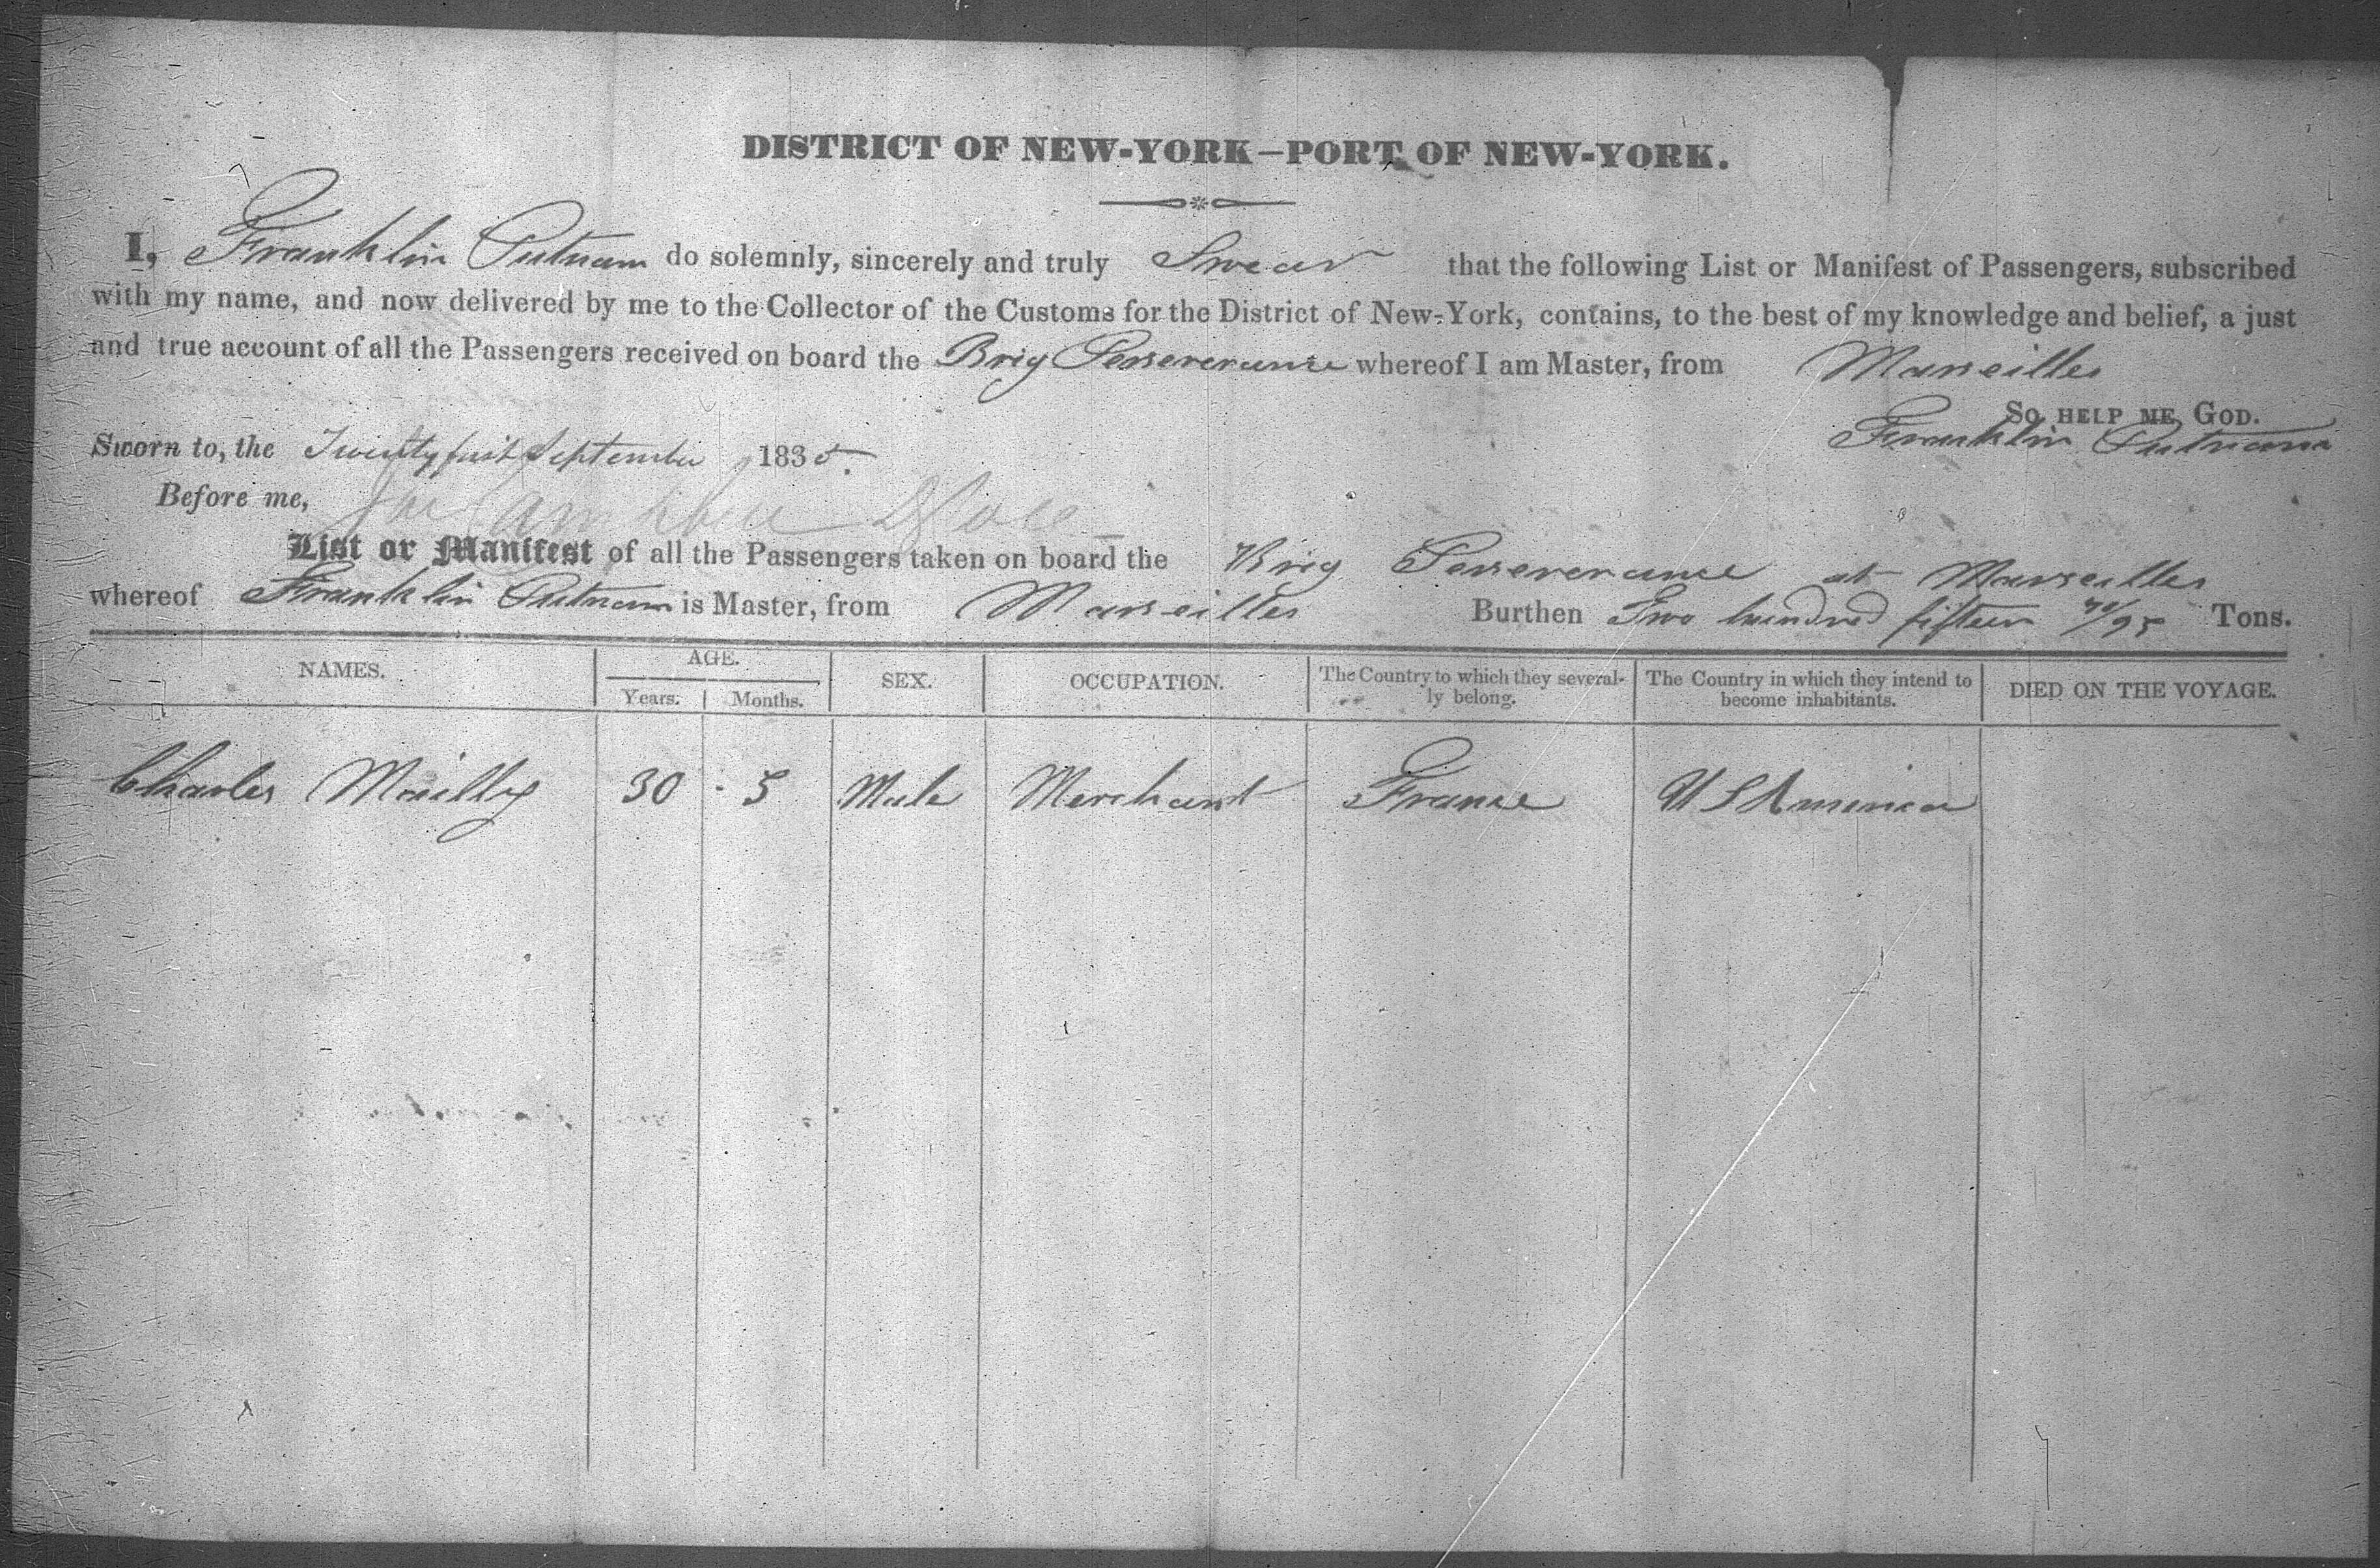 DISTRICT OF NEW-YORK—PORT OF NEW-YORK.
I, Franklin Putnam do solemnly, sincerely and truly Swear that the following List or Manifest of Passengers, subscribed
with my name, and now delivered by me to the Collector of the Customs for the District of New-York, contains, to the best of my knowledge and belief, a just
and true account of all the Passengers received on board the Brig Perseverance whereof I am Master, from Marseilles
SO HELP ME GOD.
Franklin Putnam
Sworn to, the Twenty first September 1835.
Before me,
List or Manifest of all the Passengers taken on board the Brig Perseverance at Marseilles
whereof Franklin Putnam is Master, from Marseilles Burthen Two hundred fifteen /95 Tons.
NAMES. AGE. Years. Months. SEX. OCCUPATION. The Country to which they severally belong. The Country in which they intend to become inhabitants. DIED ON THE VOYAGE.
Charles Mailly 30 5 Male Merchant France U S America